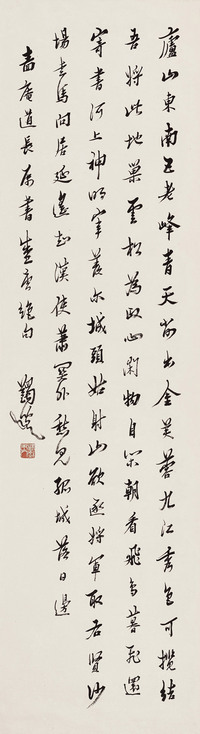 廬山東南五老峰青天削出金芙蓉九江秀色可攬結
吾將此地巢雲松為政心閒物自閒朝看飛鳥暮飛還
寄書河上神明宰羨爾城頭姑射山欲逐將軍取右賢沙
場走馬向居延遙知漢使蕭關外愁見孤城落日邊
庵道長屬書盛唐絕句